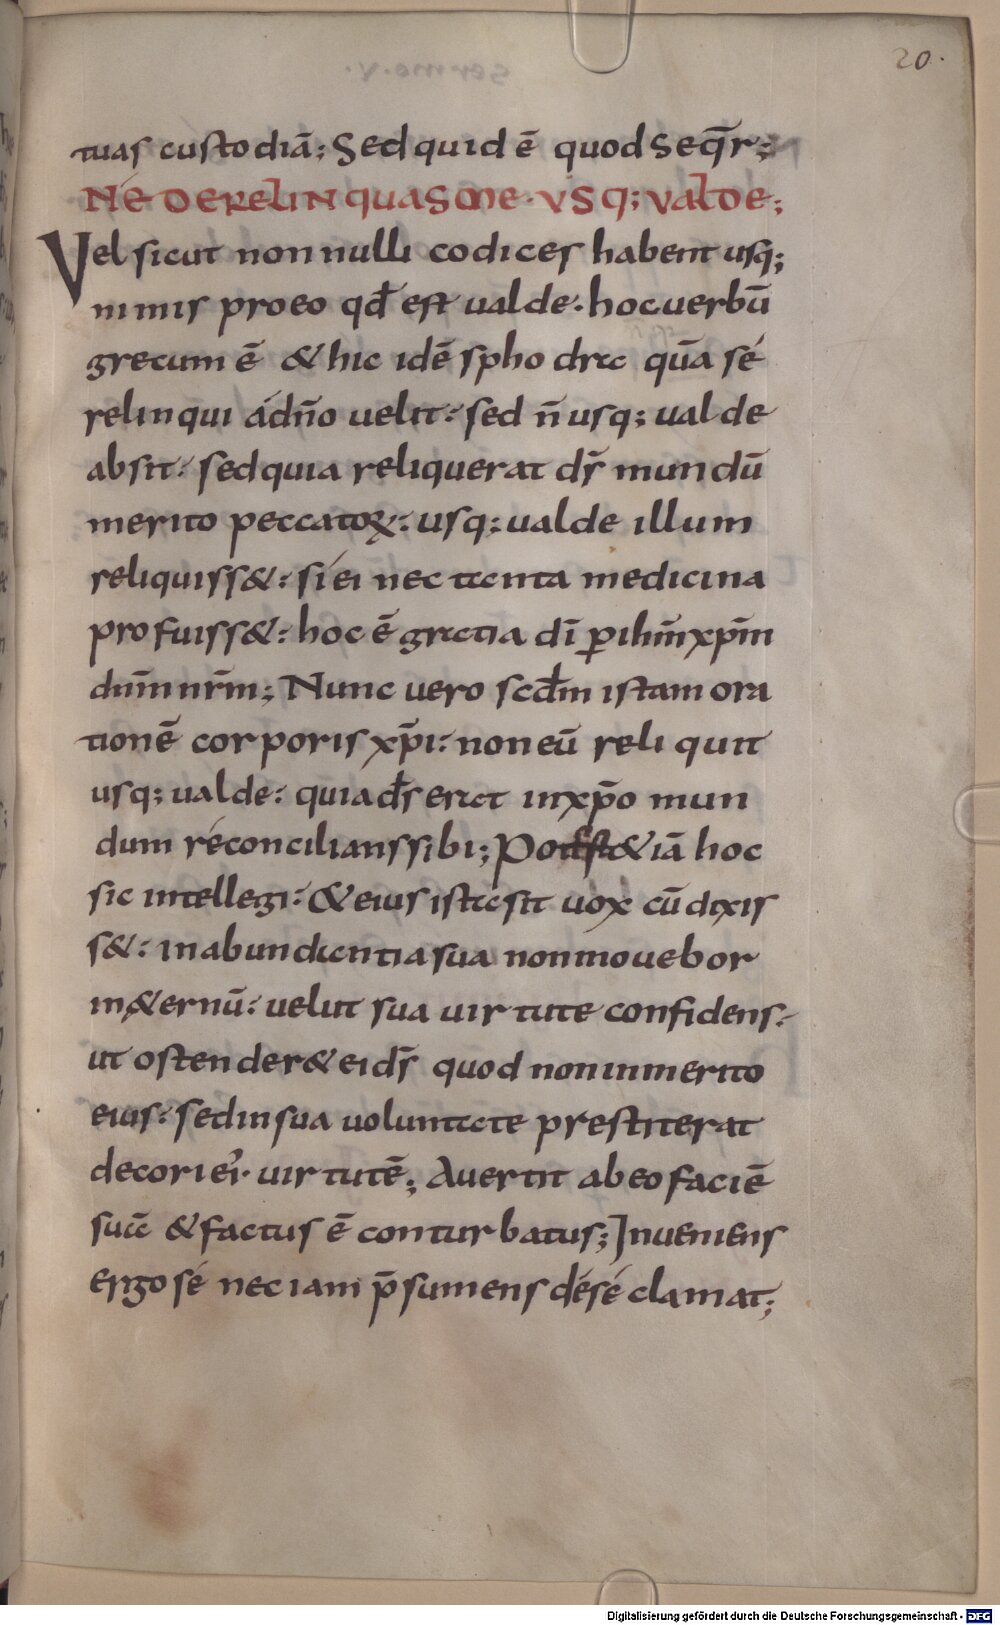 20.
tuas custodiā; Sed quid ē quod seq̄r;
NE DERELINQUAS ME. USQ; VALDE;
Vel sicut nonnulli codices habent usq;
nimis pro eo qđ est ualde. hoc uerbū
grecum ē & hic idē sphodra quā sé
relinqui á dño uelit: sed n̄ usq; ualde
absit: sed quia reliquerat d̄s mundū
merito peccatoꝝ: usq; ualde illum
reliquiss&: si ei nec tanta medicina
profuiss&: hoc ē gratia dī ꝑ ihm̄ xp̄m
dnm̄ nr̄m; Nunc uero scđm istam ora
tionē corporis xp̄i: non eū reliquit
usq; ualde: quia đs erat in xp̄o mun
dum réconcilians sibi; Pot& iā hoc
sic intellegi: & eius ista sit uox cū dixis
s&: in abundantia sua non mouebor
in&ernū: uelut sua uirtute confidens:
ut ostender& ei d̄s quod non in merito
eius: sed in sua uoluntate prestiterat
decori ei᾽. uirtutē; Auertit ab eo faciē
suā & factus ē conturbatus; Inueniens
ergo sé nec iam p̄sumens dé sé clamat;
Digitalisierung gefördert durch die Deutsche Forschungsgemeinschaft - DFG